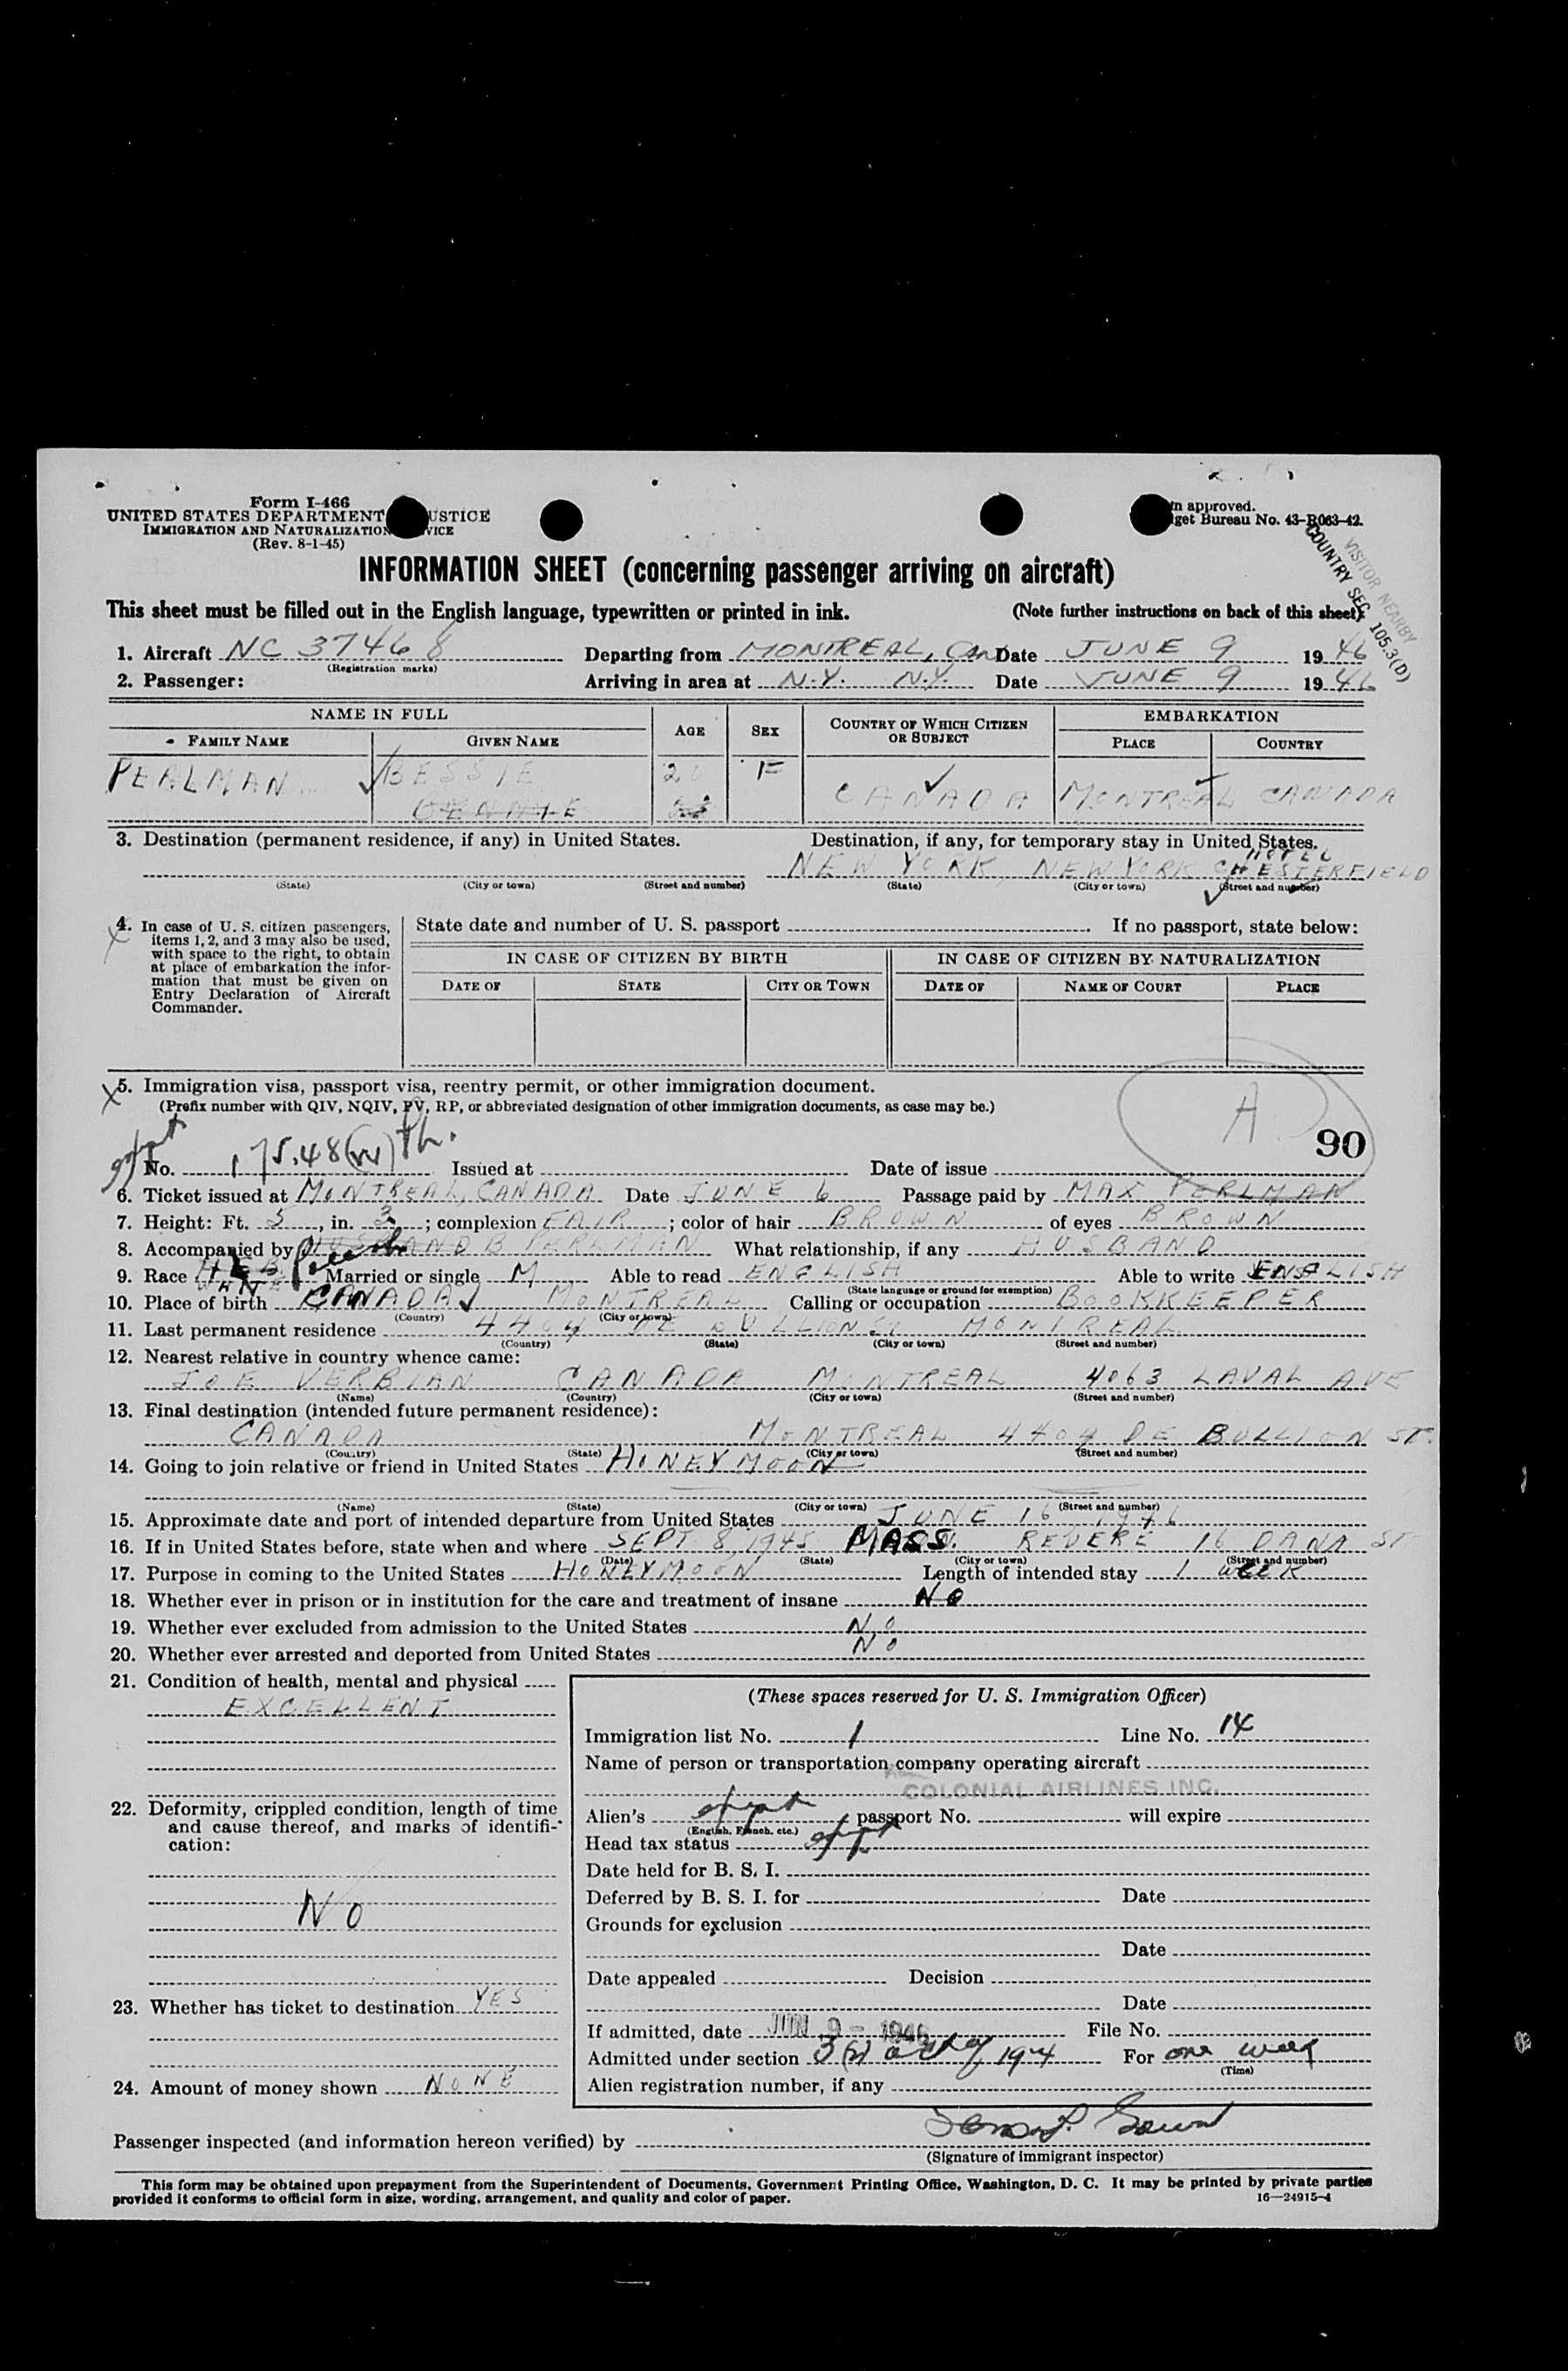 Form I-466
UNITED STATES DEPARTMENT USTICE
IMMIGRATION AND NATURALIZATION VICE
(Rev. 8-1-45)
n approved.
get Bureau No. 43-R063-42.
VISITOR NEARBY
COUNTRY SEC 105.3(D)
INFORMATION SHEET (concerning passenger arriving on aircraft)
This sheet must be filled out in the English language, typewritten or printed in ink. (Note further instructions on back of this sheet)
1. Aircraft NC 37468 Departing from MONTREAL, CAN Date JUNE 9 1946
(Registration marks)
2. Passenger: Arriving in area at N.Y. N.Y. Date JUNE 9 1946
NAME IN FULL AGE SEX COUNTRY OF WHICH CITIZEN OR SUBJECT EMBARKATION
FAMILY NAME GIVEN NAME PLACE COUNTRY
PERLMAN BESSIE 20 F CANADA MONTREAL CANADA
3. Destination (permanent residence, if any) in United States. Destination, if any, for temporary stay in United States.
NEW YORK NEW YORK HOTEL CHESTERFIELD
(State) (City or town) (Street and number) (State) (City or town) (Street and number)
4. In case of U. S. citizen passengers, items 1, 2, and 3 may also be used, with space to the right, to obtain at place of embarkation the information that must be given on Entry Declaration of Aircraft Commander.
State date and number of U. S. passport If no passport, state below:
IN CASE OF CITIZEN BY BIRTH IN CASE OF CITIZEN BY NATURALIZATION
DATE OF STATE CITY OR TOWN DATE OF NAME OF COURT PLACE
5. Immigration visa, passport visa, reentry permit, or other immigration document.
(Prefix number with QIV, NQIV, PV, RP, or abbreviated designation of other immigration documents, as case may be.)
A
90
No. 175.48 Issued at Date of issue
6. Ticket issued at MONTREAL, CANADA Date JUNE 6 Passage paid by MAX PERLMAN
7. Height: Ft. 5, in. 3; complexion FAIR; color of hair BROWN of eyes BROWN
8. Accompanied by HUSBAND B PERLMAN What relationship, if any HUSBAND
9. Race HEB Married or single M Able to read ENGLISH Able to write ENGLISH
(State language or ground for exemption)
10. Place of birth CANADA MONTREAL Calling or occupation BOOKKEEPER
(Country) (City or town)
11. Last permanent residence 4404 DE BULLION ST MONTREAL
(Country) (State) (City or town) (Street and number)
12. Nearest relative in country whence came:
JOE VERBIAN CANADA MONTREAL 4063 LAVAL AVE
(Name) (Country) (City or town) (Street and number)
13. Final destination (intended future permanent residence):
CANADA MONTREAL 4404 DE BULLION ST.
(Country) (State) (City or town) (Street and number)
14. Going to join relative or friend in United States HONEYMOON
(Name) (State) (City or town) (Street and number)
15. Approximate date and port of intended departure from United States JUNE 16 1946
16. If in United States before, state when and where SEPT 8, 1945 MASS. REVERE 16 DANA ST
(Date) (State) (City or town) (Street and number)
17. Purpose in coming to the United States HONEYMOON Length of intended stay 1 WEEK
18. Whether ever in prison or in institution for the care and treatment of insane NO
19. Whether ever excluded from admission to the United States NO
20. Whether ever arrested and deported from United States NO
21. Condition of health, mental and physical
EXCELLENT
22. Deformity, crippled condition, length of time and cause thereof, and marks of identification:
NO
23. Whether has ticket to destination YES
24. Amount of money shown NONE
(These spaces reserved for U. S. Immigration Officer)
Immigration list No. 1 Line No. 14
Name of person or transportation company operating aircraft
COLONIAL AIRLINES INC.
Alien's passport No. will expire
(English, French, etc.)
Head tax status
Date held for B. S. I.
Deferred by B. S. I. for Date
Grounds for exclusion
Date
Date appealed Decision
Date
If admitted, date JUN 9 - 1946 File No.
Admitted under section 3(2) act of 1924 For one week
(Time)
Alien registration number, if any
Passenger inspected (and information hereon verified) by
(Signature of immigrant inspector)
This form may be obtained upon prepayment from the Superintendent of Documents, Government Printing Office, Washington, D. C. It may be printed by private parties
provided it conforms to official form in size, wording, arrangement, and quality and color of paper. 16—24915-4